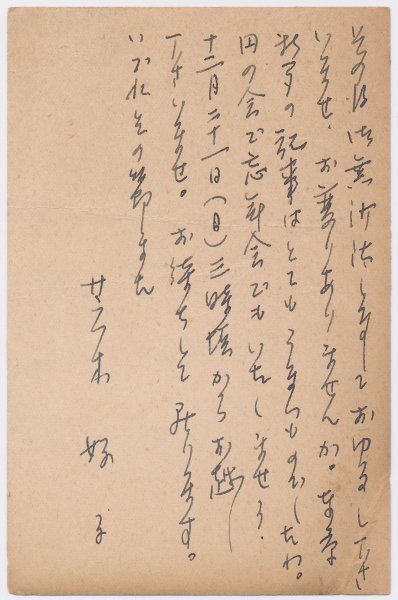 その後御無沙汰しましておゆるし下さ
いませ、お変りありませんか。
の記事はとてもうまいものでしたね。
四の会で忘年会でもいたしませう、
十二月二十一日(日)三時頃からお越し
下さいませ。お待ちして居ります。
いづれその節また
茨木 好子